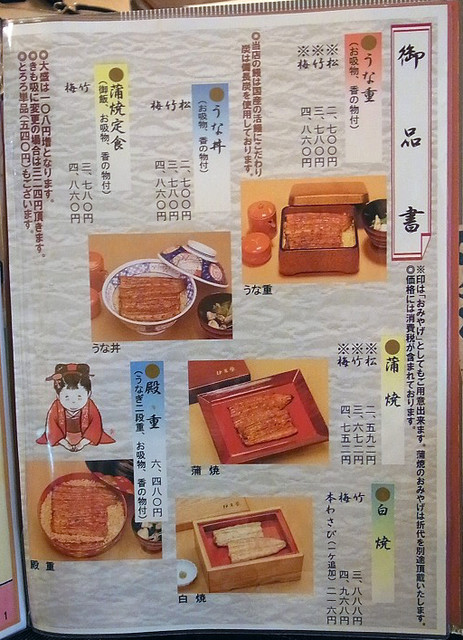 御品書
うな重
（お吸物、香の物付）
※松 二、七〇〇円
※竹 三、七八〇円
※梅 四、八六〇円
◎当店の鰻は国産の活鰻にこだわり
炭は備長炭を使用しております。
うな丼
（お吸物、香の物付）
松 二、七〇〇円
竹 三、七八〇円
梅 四、八六〇円
蒲焼定食
（御飯、お吸物、香の物付）
竹 三、七八〇円
梅 四、八六〇円
◎大盛は一〇八円増となります。
◎きも吸に変更の場合は三二四円頂きます。
◎とろろ単品（五四〇円）もございます。
うな重
うな丼
※印は「おみやげ」としてもご用意出来ます。蒲焼のおみやげは折代を別途頂戴いたします。
◎価格には消費税が含まれております。
蒲焼
※松 二、五九二円
※竹 三、六七二円
※梅 四、七五二円
蒲焼
殿重
（うなぎ二段重 お吸物、香の物付）
六、四八〇円
殿重
白焼
竹 三、八八八円
梅 四、九六八円
本わさび（一ケ追加）二一六円
白焼
1